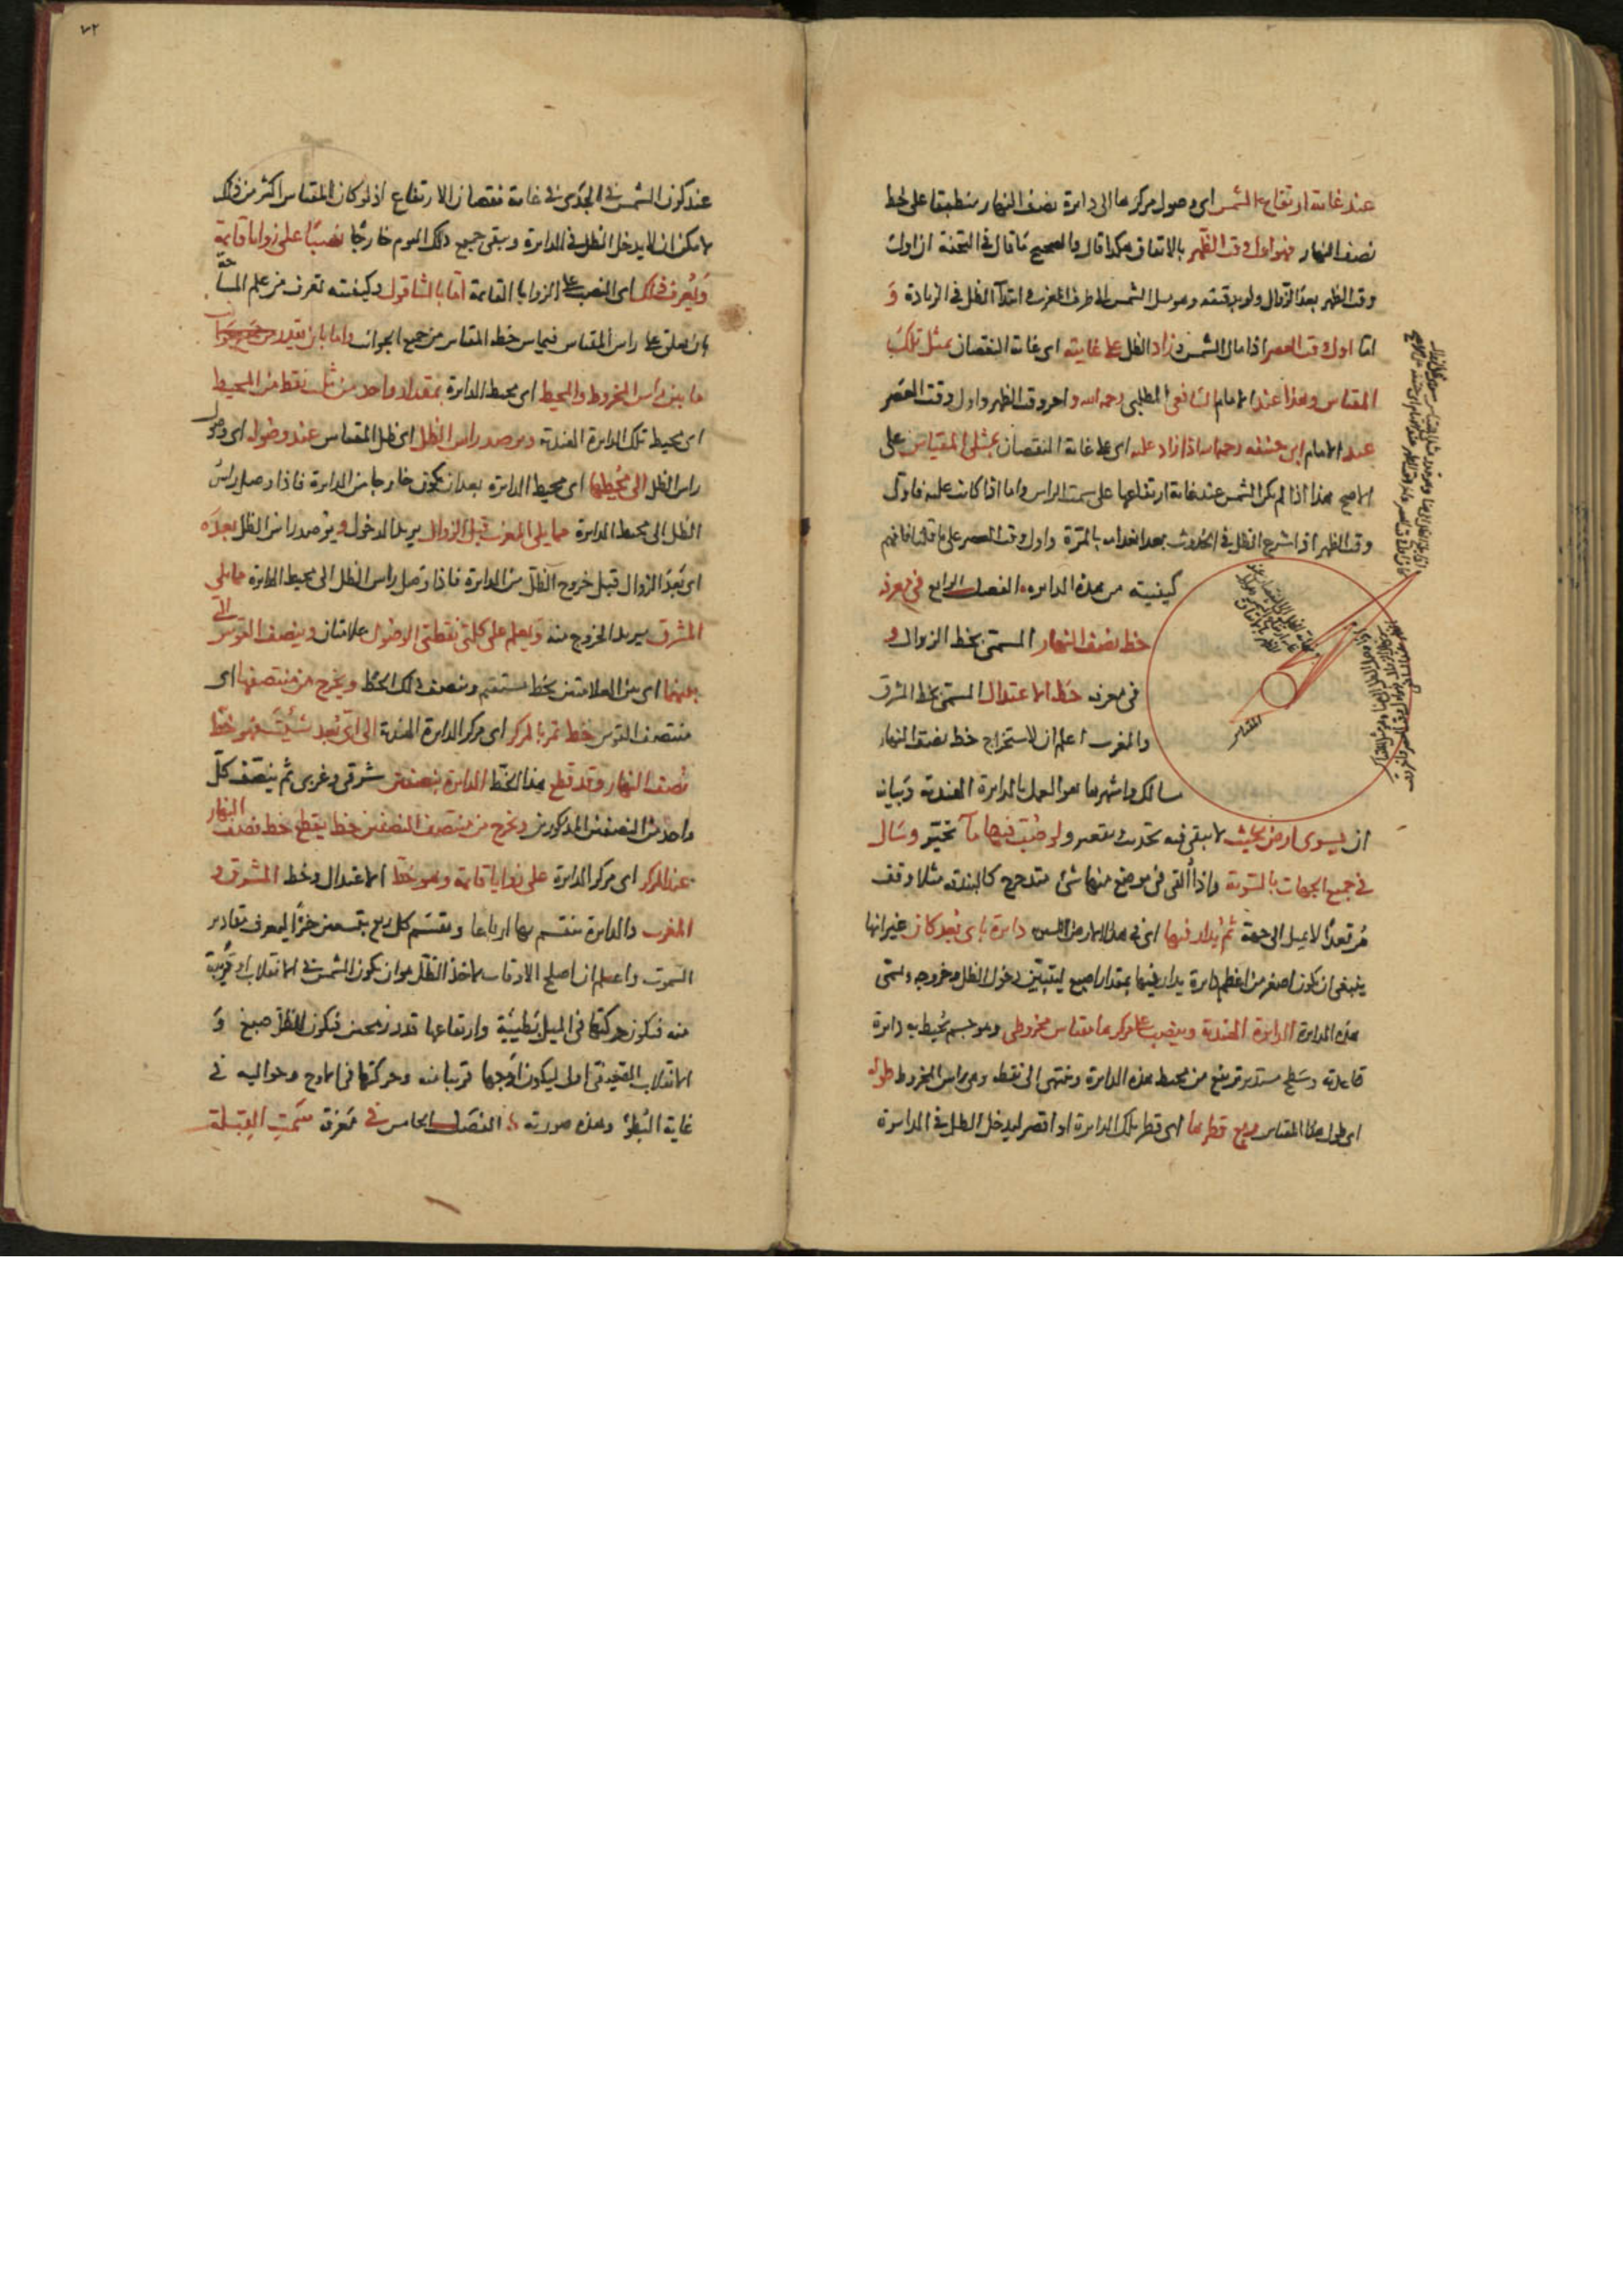 عند غاية ارتفاع الشمس اى وصول مركزها الى دايرة نصف النهار منطبقا على خط
نصف النهار فهو اول وقت الظهر بالاتفاق هكذا قال والصحيح ما قال فى التحفة ان اول
وقت الظهر بعد الزوال ولو بدقيقة وهو ميل الشمس الى طرف المغرب وابتدآ الظل فى الزيادة و
اما اول وقت العصر اذا مال الشمس وزاد الظل على غايته اى غاية النقصان بمثل تلك
المقياس وهذا عند الامام الشافعى المطلبى رحمه الله واخر وقت الظهر واول وقت العصر
عند الامام ابى حنيفه رحمه الله اذا زاد عليه اى على غاية النقصان بمثلى المقياس على
الاصح هذا اذا لم يكن الشمس عند غاية ارتفاعها على سمت الراس واما اذا كانت عليه فاول
وقت الظهر اذا شرع الظل فى الحدوث بعد انعدامه بالمرة واول وقت العصر على ما قلنا فافهم
كيفيته من هذه الدايره الفصل الرابع فى معرفة
خط نصف النهار المسمى بخط الزوال و
فى معرفة خط الاعتدال المسمى بخط المشرق
والمغرب اعلم ان لاستخراج خط نصف النهار
مسالك واشهرها هو العمل بالدايرة الهندية وبيانه
ان يسوى ارض بحيث لا يبقى فيه تحدب وتقعير ولو صب فيها مآ تحير وسال
فى جميع الجهات بالسوية واذا القى فى موضع منها شئ متدحرج كالبندقه مثلا وقف
مرتعدا لا يميل الى جهة ثم يدار فيها اى فى هذه الارض دايرة باى بعد كان غير انها
ينبغى ان يكون اصغر من اعظم دايرة يدار فيها بمقدار اصبع ليتبين دخول الظل وخروجه وتسمى
هذه الدايرة الدايرة الهندية وينصب على مركزها مقياس مخروطى وهو جسم يحيط به دايرة
قاعدته وسطح مستدير ترتفع من محيط هذه الدايرة وينتهى الى نقطه وهى راس المخروط طوله
اى طول هذا المقياس ربع قطرها اى قطر تلك الدايرة او اقصر ليدخل الظل فى الدايرة
المقياس
٧٢
عند كون الشمس فى الجدى فى غاية نقصان الارتفاع اذ لو كان المقياس اكثر من ذلك
لامكن ان لا يدخل الظل فى الدايرة ويبقى جميع ذلك اليوم خارجا نصبا على زوايا قايمة
ويعرف ذلك اى النصب على الزوايا القايمة اما بالشاقول وكيفيته تعرف من علم المساحة
بان يعلق على راس المقياس فيماس خط المقياس من جميع الجوانب واما بان يقدر
ما بين راس المخروط والمحيط اى محيط الدايرة بمقدار واحد من ثلث نقط من المحيط
اى محيط تلك الدايرة الهندية ويرصد راس الظل اى ظل المقياس عند وصوله اى وصول
راس الظل الى محيطها اى محيط الدايره بعد ان يكون خارجا من الدايرة فاذا وصل راس
الظل الى محيط الدايرة مما يلى المغرب قبل الزوال يريد الدخول ويرصد راس الظل بعده
اى بعد الزوال قبل خروج الظل من الدايرة فاذا وصل راس الظل الى محيط الدايرة مما يلى
المشرق يريد الخروج منه ويعلم على كلتى نقطتى الوصول علامتان وينصف القوس التى
بينهما اى بين العلامتين بخط مستقيم وينصف ذلك الخط ويخرج من منتصفها اى
منتصف القوس خط تمر بالمركز اى مركز الدايرة الهندية الى اى بعد شئت فهو خط
نصف النهار وقد قطع هذا الخط الدايرة بنصفين شرقى وغربى ثم ينصف كل
واحد من النصفين المذكورين ويخرج من منتصف النصفين خط يقطع خط نصف النهار
عند المركز اى مركز الدايرة على زوايا قايمة وهو خط الاعتدال وخط المشرق و
المغرب والدايرة تنقسم بها ارباعا ويقسم كل ربع بتسعين جزءا ليعرف مقادير
السموت واعلم ان اصلح الاوقات لاخذ الظل هو ان يكون الشمس فى الانقلاب او قريبة
منه فيكون حركتها فى الميل بطيئية وارتفاعها قدر رمحين فيكون الظل صبغ و
الانقلاب الصيفى اولى ليكون اوجها قريبا منه وحركتها فى الاوج وحواليه فى
غاية البطؤ وهذه صورته الفصل الخامس فى معرفة سمت القبلة